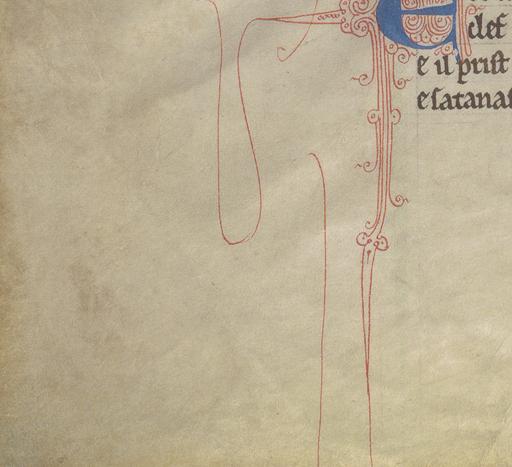 clef
e il prist
e satanas